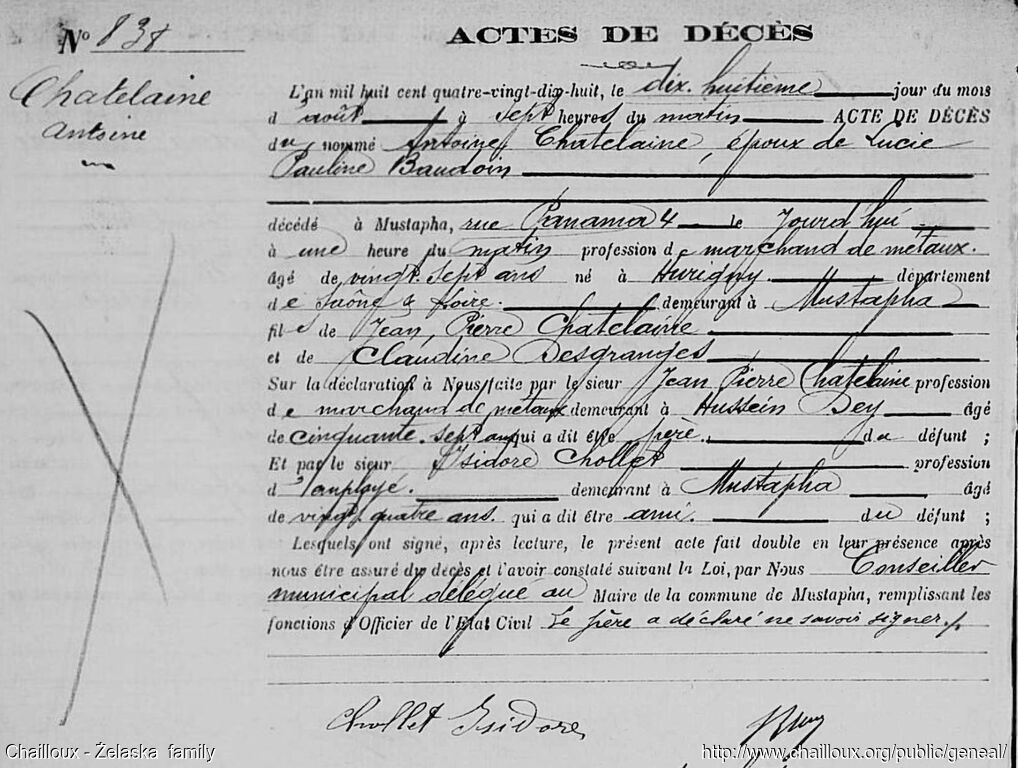 ACTES DE DÉCÈS
Nº 838
Chatelaine
Antoine
L'an mil huit cent quatre-vingt-dix-huit, le dix-huitième jour du mois
d'août à sept heures du matin ACTE DE DÉCÈS
du nommé Antoine, Chatelaine, époux de Lucie
Pauline Baudoin
décédé à Mustapha, rue Panama 4 le Jourd'hui
à une heure du matin profession de marchand de métaux.
âgé de vingt-sept ans né à Hurigny département
de Saône & Loire. demeurant à Mustapha
fils de Jean, Pierre Chatelaine
et de Claudine Desgranges
Sur la déclaration à Nous faite par le sieur Jean Pierre Chatelaine profession
de marchand de métaux demeurant à Hussein Dey âgé
de cinquante-sept ans qui a dit être père. du défunt ;
Et par le sieur Isidore Chollet profession
d'employé. demeurant à Mustapha âgé
de vingt-quatre ans. qui a dit être ami. du défunt ;
Lesquels ont signé, après lecture, le présent acte fait double en leur présence après
nous être assuré du décès et l'avoir constaté suivant la Loi, par Nous Conseiller
municipal délégué au Maire de la commune de Mustapha, remplissant les
fonctions d'Officier de l'Etat Civil Le père a déclaré ne savoir signer./.
Chollet Isidore
Chailloux - Želaska family
http://www.chailloux.org/public/geneal/